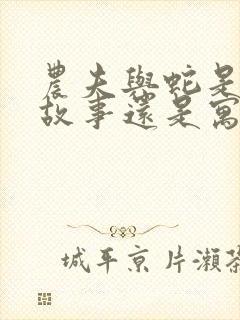 農夫與蛇是
故事還是寓
城平京 片瀨